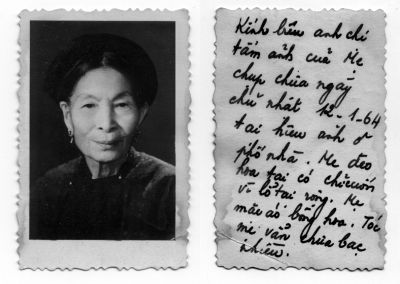 Kính biếu anh chi
tấm ảnh của Mẹ
chụp chùa ngày
chủ nhật 12-1-64
tai hiêu anh ở
phố nhà. Mẹ đeo
hoa tai có chiếc
vì lỗ tai rộng. Mẹ
mặc áo bông hoa. Tóc
mẹ vẫn chưa bạc
nhiều.